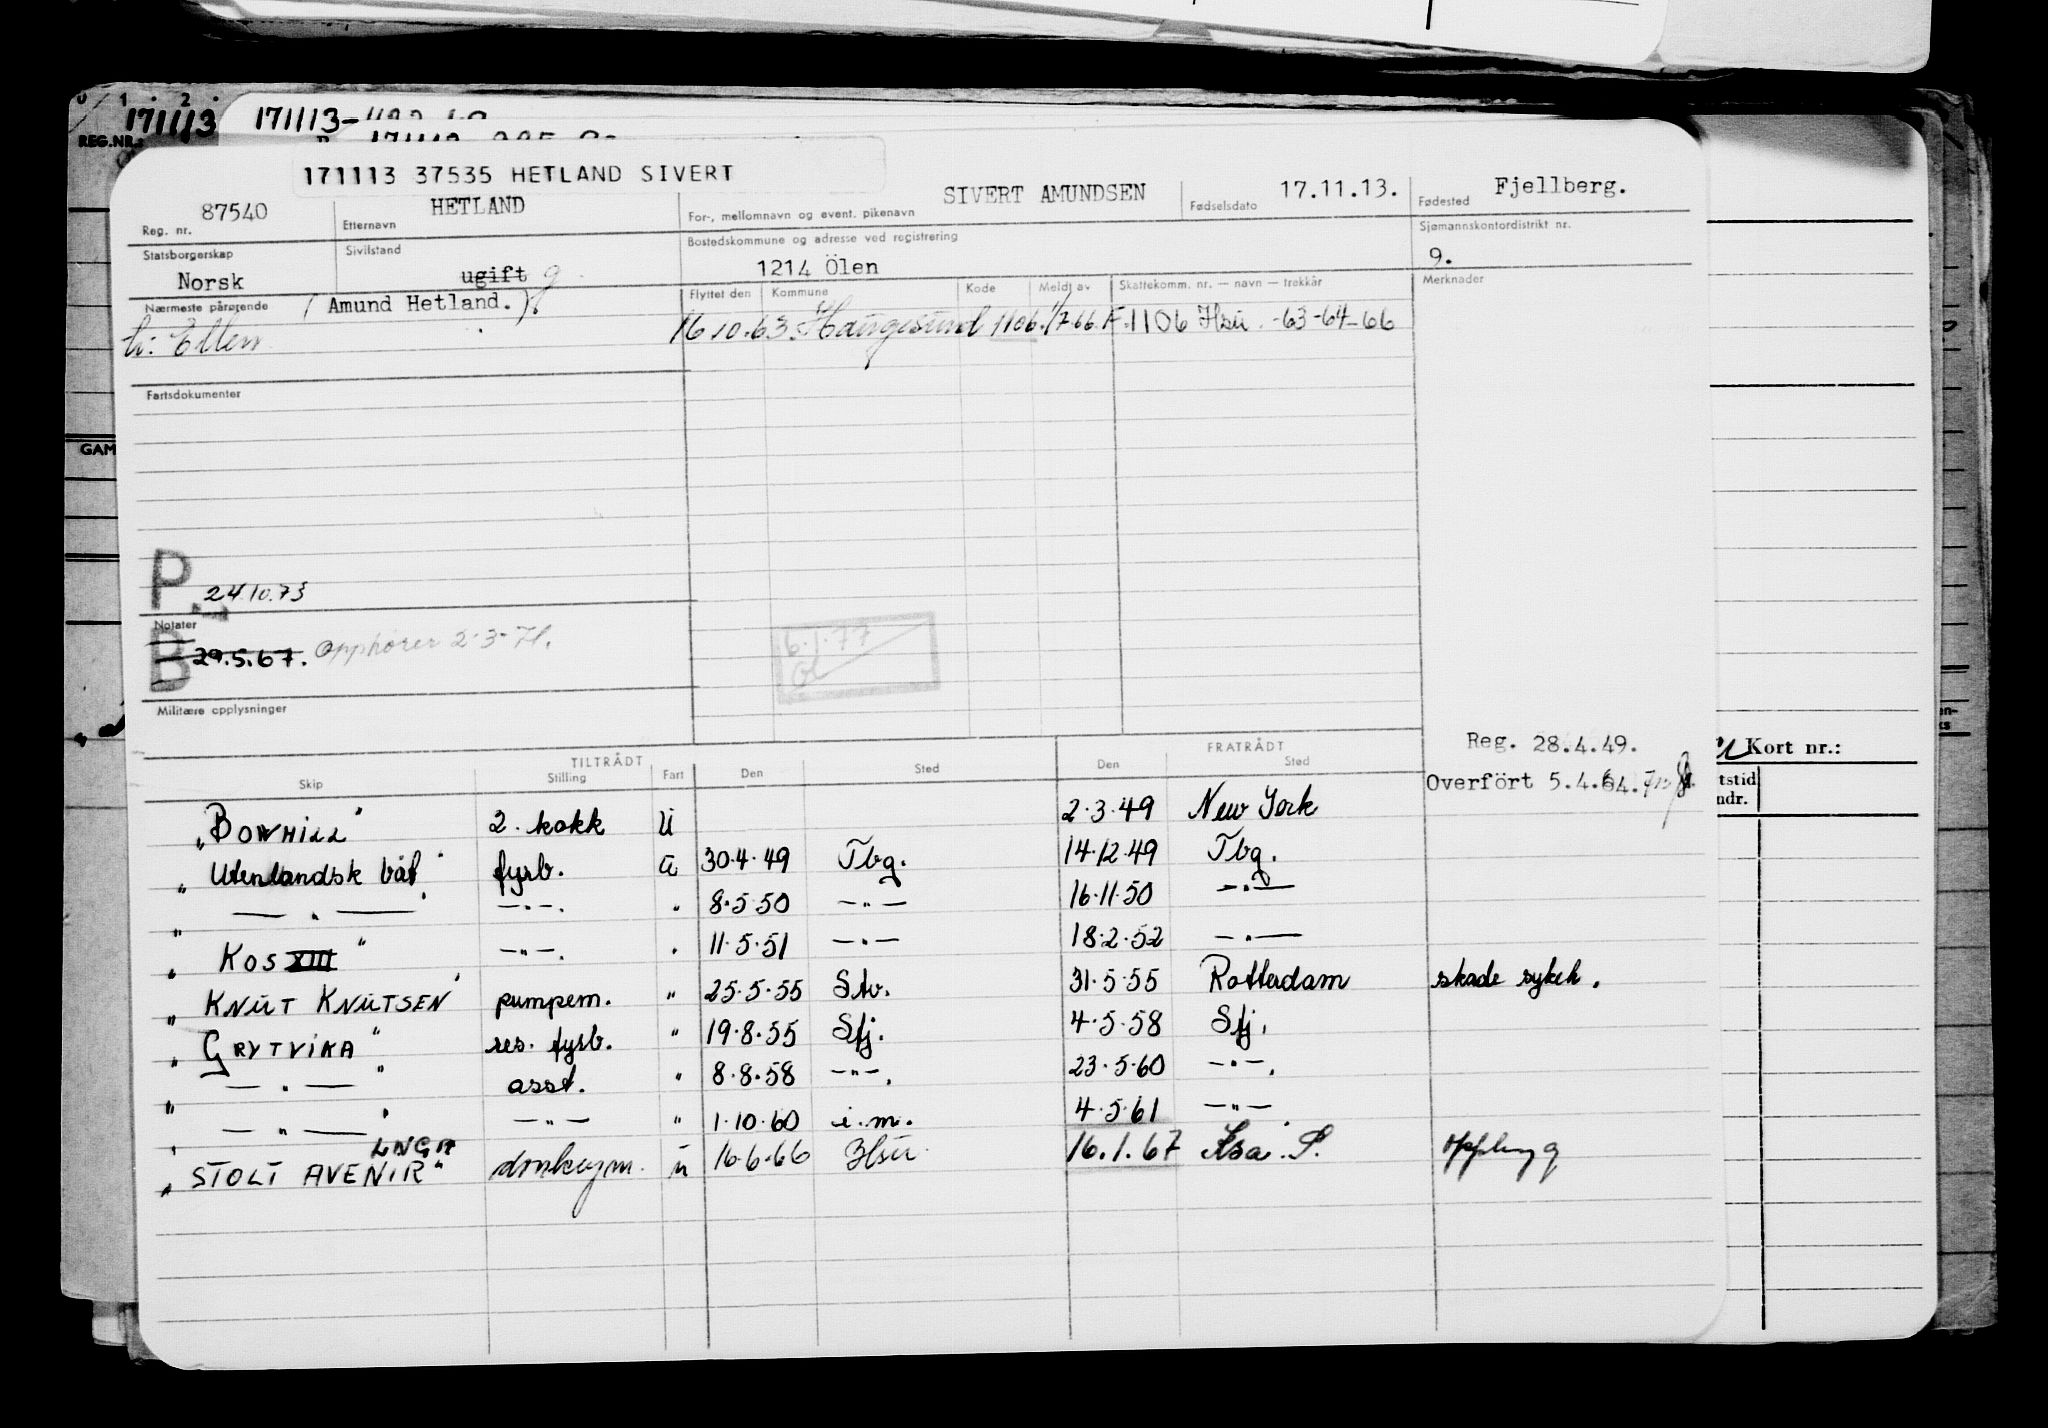 0 1 . 2 .
171113 171113-
REG.NR.:
171113 37535 HETLAND SIVERT
87540 HETLAND SIVERT AMUNDSEN 17.11.13. Fjellberg.
Reg. nr. Etternavn For-, mellomnavn og event. pikenavn Fødselsdato Fødested
Statsborgerskap Sivilstand Bostedskommune og adresse ved registrering Sjømannskontordistrikt nr.
Norsk ugift g 1214 Ölen 9.
Nærmeste pårørende (Amund Hetland.) Flyttet den Kommune Kode Meldt av Skattekomm. nr. — navn — trekkår Merknader
h: Ellen 16.10.63. Haugesund 1106. 1/7.66. F. 1106 Hsu. -63-64-66
Fartsdokumenter
GAM
P 24.10.73
Notater
B 29.5.67. Opphører 2-3-71.
6.1.77
Militære opplysninger
Reg. 28.4.49.
Kort nr.:
TILTRÅDT FRATRÅDT
Skip Stilling Fart Den Sted Den Sted
Overfört 5.4.64.
tstid
ndr.
„BOWHILL" 2. kokk U 2.3.49 New York
„Utenlandsk båt" fyrb. U 30.4.49 Tbg. 14.12.49 Tbg.
„ — " — " — " —. " 8.5.50 — " — 16.11.50 — " —
„ KOS XIII " — " —. " 11.5.51 — " — 18.2.52 — " —
„ KNUT KNUTSEN" pumpem. " 25.5.55 Stv. 31.5.55 Rotterdam skade sykeh.
„ GRYTVIKA " res. fyrb. " 19.8.55 Sfj. 4.5.58 Sfj.
„ — " — " asst. " 8.8.58 — " —. 23.5.60 — " —.
„ — " — " — " — " 1.10.60 i.m. 4.5.61 — " —
„ STOLT AVENIR" LNGA u 16.6.66 Hsu. 16.1.67